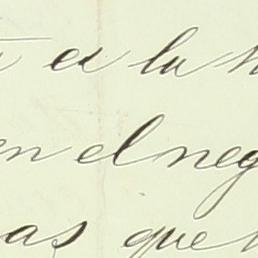 á la
en el neg
as que